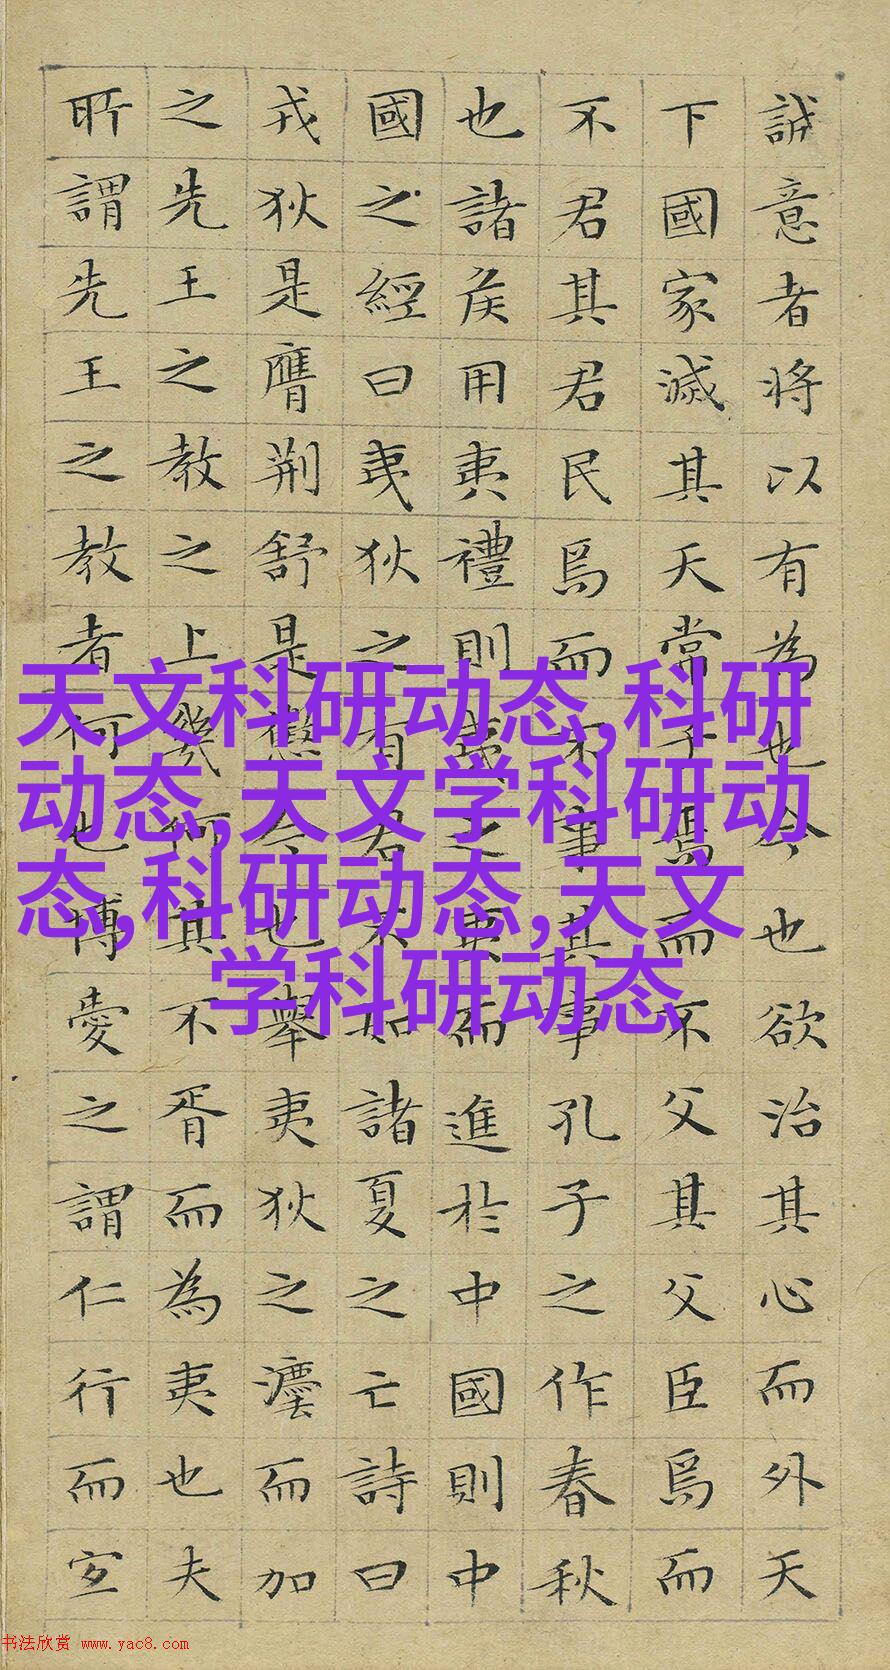 誠意者将以有為也今也欲治其心而外天
下國家滅其天常子焉而不父其父臣焉而
不君其君民焉而不事其事孔子之作春秋
也諸侯用夷禮則夷之夷而進於中國則中
國之經曰夷狄之有君不如諸夏之亡詩曰
戎狄是膺荆舒是懲今也舉夷狄之灋而加
之先王之教之上幾何其不胥而為夷也夫
所謂先王之教者何也博愛之謂仁行而宜
天文科研动态,科研
动态,天文学科研动
态,科研动态,天文
学科研动态
书法欣赏 www.yac8.com